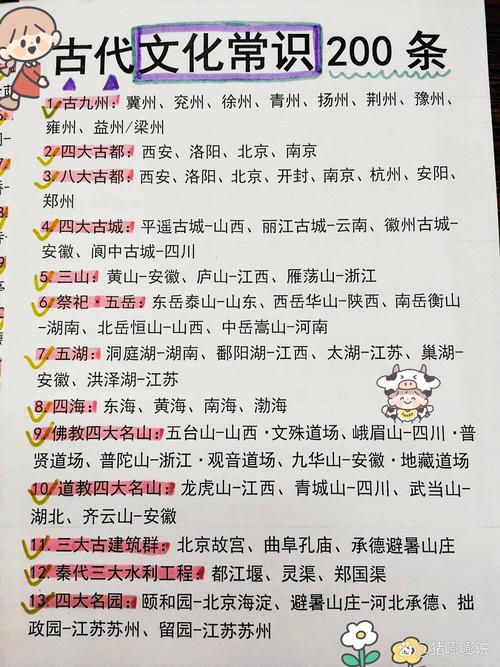 古代文化常识200条
1.古九州：冀州、兖州、徐州、青州、扬州、荆州、豫州、
雍州、益州/梁州
2.四大古都：西安、洛阳、北京、南京
3.八大古都：西安、洛阳、北京、开封、南京、杭州、安阳、
郑州
4.四大古城：平遥古城-山西、丽江古城-云南、徽州古城-
安徽、阆中古城-四川
5.三山：黄山-安徽、庐山-江西、雁荡山-浙江
6.祭祀·五岳：东岳泰山-山东、西岳华山-陕西、南岳衡山
-湖南、北岳恒山-山西、中岳嵩山-河南
7.五湖：洞庭湖-湖南、鄱阳湖-江西、太湖-江苏、巢湖-
安徽、洪泽湖-江苏
8.四海：东海、黄海、南海、渤海
9.佛教四大名山：五台山-山西·文殊道场、峨眉山-四川·普
贤道场、普陀山-浙江·观音道场、九华山-安徽·地藏道场
10.道教四大名山：龙虎山-江西、青城山-四川、武当山-
湖北、齐云山-安徽
11.三大古建筑群：北京故宫、曲阜孔庙、承德避暑山庄
12.秦代三大水利工程：都江堰、灵渠、郑国渠
13.四大名园：颐和园-北京海淀、避暑山庄-河北承德、拙
政园-江苏苏州、留园-江苏苏州
猪嘭嘭说